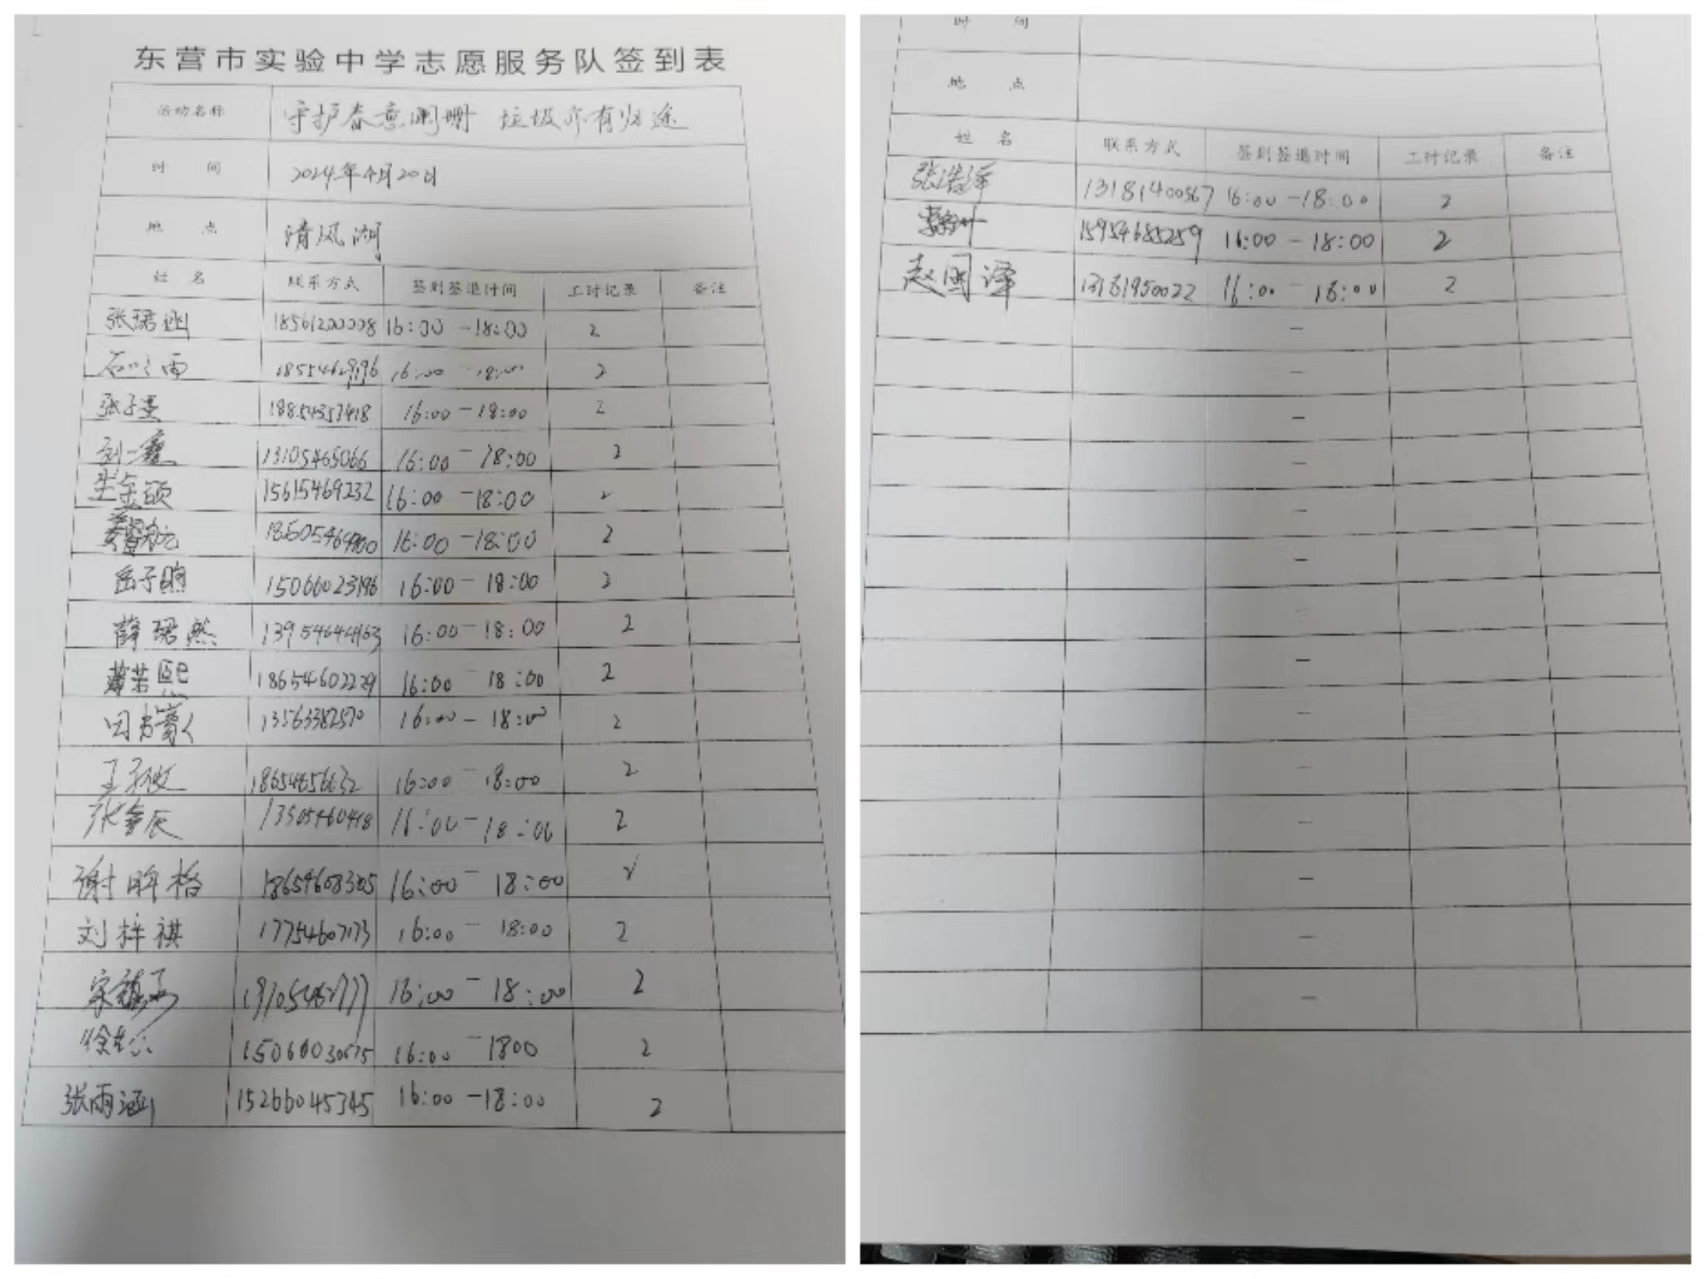 东营市实验中学志愿服务队签到表
活动名称 守护春意阑珊 垃圾亦有归途
时 间 2024年4月20日
地 点 清风湖
姓 名 联系方式 签到签退时间 工时记录 备注
张珺涵 18561200008 16:00-18:00 2
雨 16:00-18:00 2
张子 18854357418 16:00-18:00 2
刘一鑫 13105465066 16:00-18:00 2
金硕 15615469232 16:00-18:00 2
16:00-18:00 2
岳子 16:00-18:00 2
薛珺然 16:00-18:00 2
若熙 18654602229 16:00-18:00 2
田 13563382570 16:00-18:00 2
王 16:00-18:00 2
张 辰 16:00-18:00 2
谢 格 18654608305 16:00-18:00
刘梓祺 17754607173 16:00-18:00 2
宋 16:00-18:00 2
徐 15066030675 16:00-1800 2
张雨涵 15266045345 16:00-18:00 2
时 间
地 点
姓 名 联系方式 签到签退时间 工时记录 备注
张浩泽 13181400567 16:00-18:00 2
15954685259 16:00-18:00 2
赵国泽 16:00-18:00 2
-
-
-
-
-
-
-
-
-
-
-
-
-
-